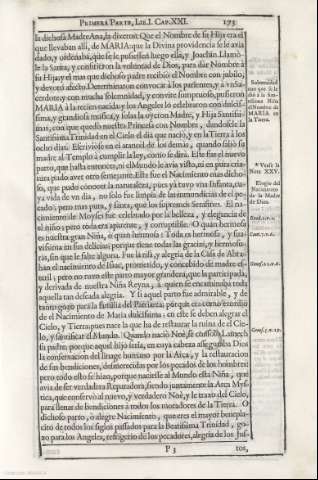 PRIMERA PARTE, LIB. I. CAP. XXI. 173
la dichosa Madre Ana, la dixeron: Que el Nombre de su Hija era el
que llevaban allí, de MARIA: que la Divina providencia se le avia
dado, y ordenaba, que se le pusiessen luego ella, y Joachin. Llamó-
le la Santa, y confirieron la voluntad de Dios, para dar Nombre à
su Hija: y el mas que dichoso padre recibió el Nombre con jubilo,
y devoto afecto. Determinaron convocar à los parientes, y à vn Sa-
cerdote; y con mucha solemnidad, y convite sumptuoso, pusieron
MARIA à la recien nacida: y los Angeles lo celebraron con dulcis-
sima, y grandiosa musica, y solas la oyeron Madre, y Hija Santissi-
mas, con que quedó nuestra Princesa con Nombre, dandosele la
Santissima Trinidad en el Cielo el dia que nació, y en la Tierra à los
ocho dias. Escrivióse en el arancel de los demás, quando salió su
madre al Templo à cumplir la ley, como se dirà. Este fue el nuevo
parto, que hasta entonces, ni el Mundo le avia visto, ni en pura cria-
tura pudo aver otro semejante. Este fue el Nacimiento mas dicho-
so, que pudo conocer la naturaleza, pues yà tuvo vna Infanta, cu-
ya vida de vn dia, no solo fue limpia de las inmundicias de el pe-
cado; pero mas pura, y santa, que los supremos Serafines. El na-
cimiento de Moyses fue celebrado por la belleza, y elegancia de
el niño; pero toda era aparente, y corruptible. O quan hermosa
es nuestra gran Niña, ò quan hermosa! Toda es hermosa, y sua-
vissima en sus delicias; porque tiene todas las gracias, y hermosu-
ras, sin que le falte alguna. Fue la risa, y alegria de la Casa de Abra-
han el nacimiento de Isaac, prometido, y concebido de madre es-
teril; pero no tuvo este parto mayor grandeza, que la participada,
y derivada de nuestra Niña Reyna, à quien se encaminaba toda
aquella tan deseada alegria. Y si aquel parto fue admirable, y de
tanto gozo para la familia del Patriarca; porque era como exordio
de el Nacimiento de Maria dulcissima: en este se deben alegrar el
Cielo, y Tierra, pues nace la que ha de restaurar la ruina de el Cie-
lo, y santificar el Mundo. Quando nació Noè, se consoló Lamech
su padre; porque aquel hijo seria, en cuya cabeza asseguraba Dios
la conservacion del linage humano por la Arca, y la restauracion
de sus bendiciones, desmerecidas por los pecados de los hombres;
pero todo esto se hizo, porque naciesse al Mundo esta Niña, que
avia de ser verdadera Reparadora, siendo juntamente la Arca Mys-
tica, que conservó al nuevo, y verdadero Noè, y le traxo del Cielo,
para llenar de bendiciones à todos los moradores de la Tierra. O
dichoso parto, ò alegre Nacimiento, que eres el mayor beneplaci-
to de todos los siglos passados para la Beatissima Trinidad, go-
zo para los Angeles, refrigerio de los pecadores, alegria de los Jus-
P 3 tos,
Solemnidad
con que se le
dió à la San-
tissima Niña
el Nombre de
MARIA en
la Tierra.
* Vease la
Nota XXV.
Elogio del
Nacimiento
de la Madre
de Dios.
Exod. 2. v. 2.
Cant. 7. v. 6.
Genes. 21. v. 6.
Genes. 5. v. 29.